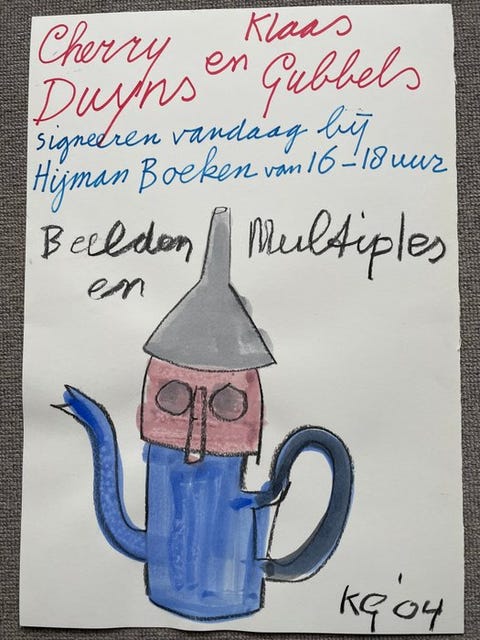 Cherry en Klaas
Duyns Gubbels
signeeren vandaag bij
Hijman Boeken van 16-18 uur
Beelden Multiples
en
KG '04